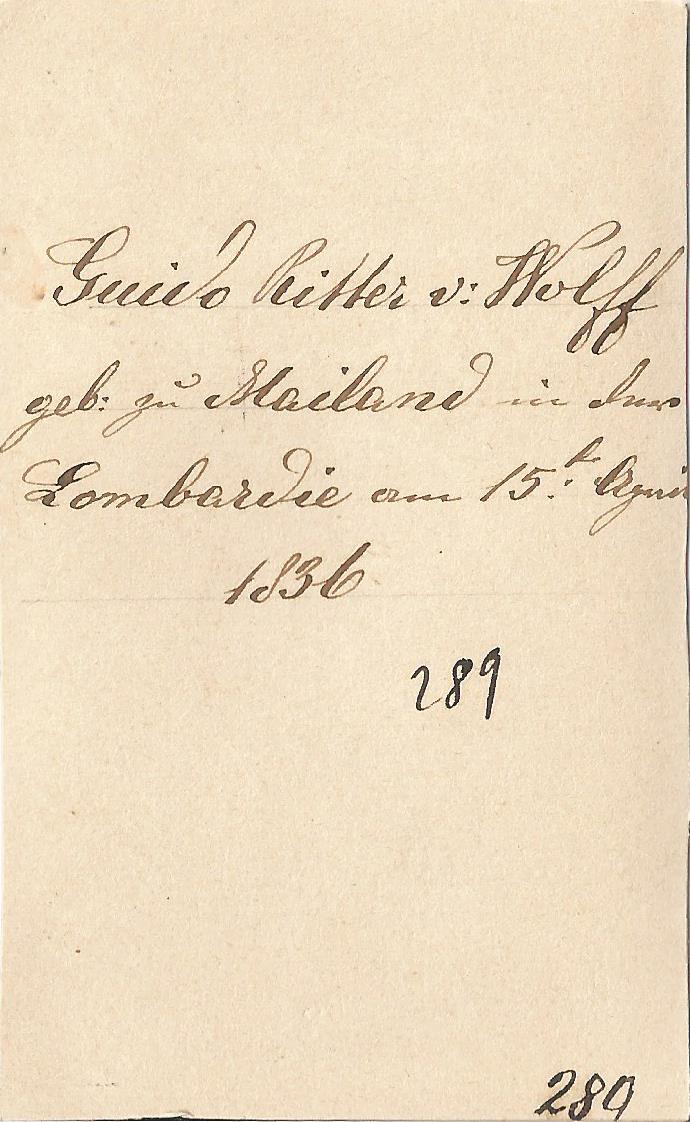 Guido Ritter v: Wolff
geb: zu Mailand in der
Lombardie am 15.t April
1836
289
289